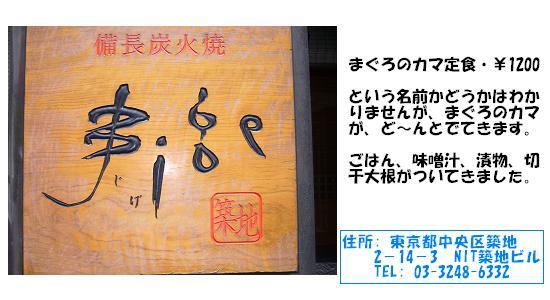 備長炭火焼
じげ
築地
まぐろのカマ定食・￥1200
という名前かどうかはわか
りませんが、まぐろのカマ
が、ど～んとでてきます。
ごはん、味噌汁、漬物、切
干大根がついてきました。
住所: 東京都中央区築地
2－14－3 NIT築地ビル
TEL: 03-3248-6332